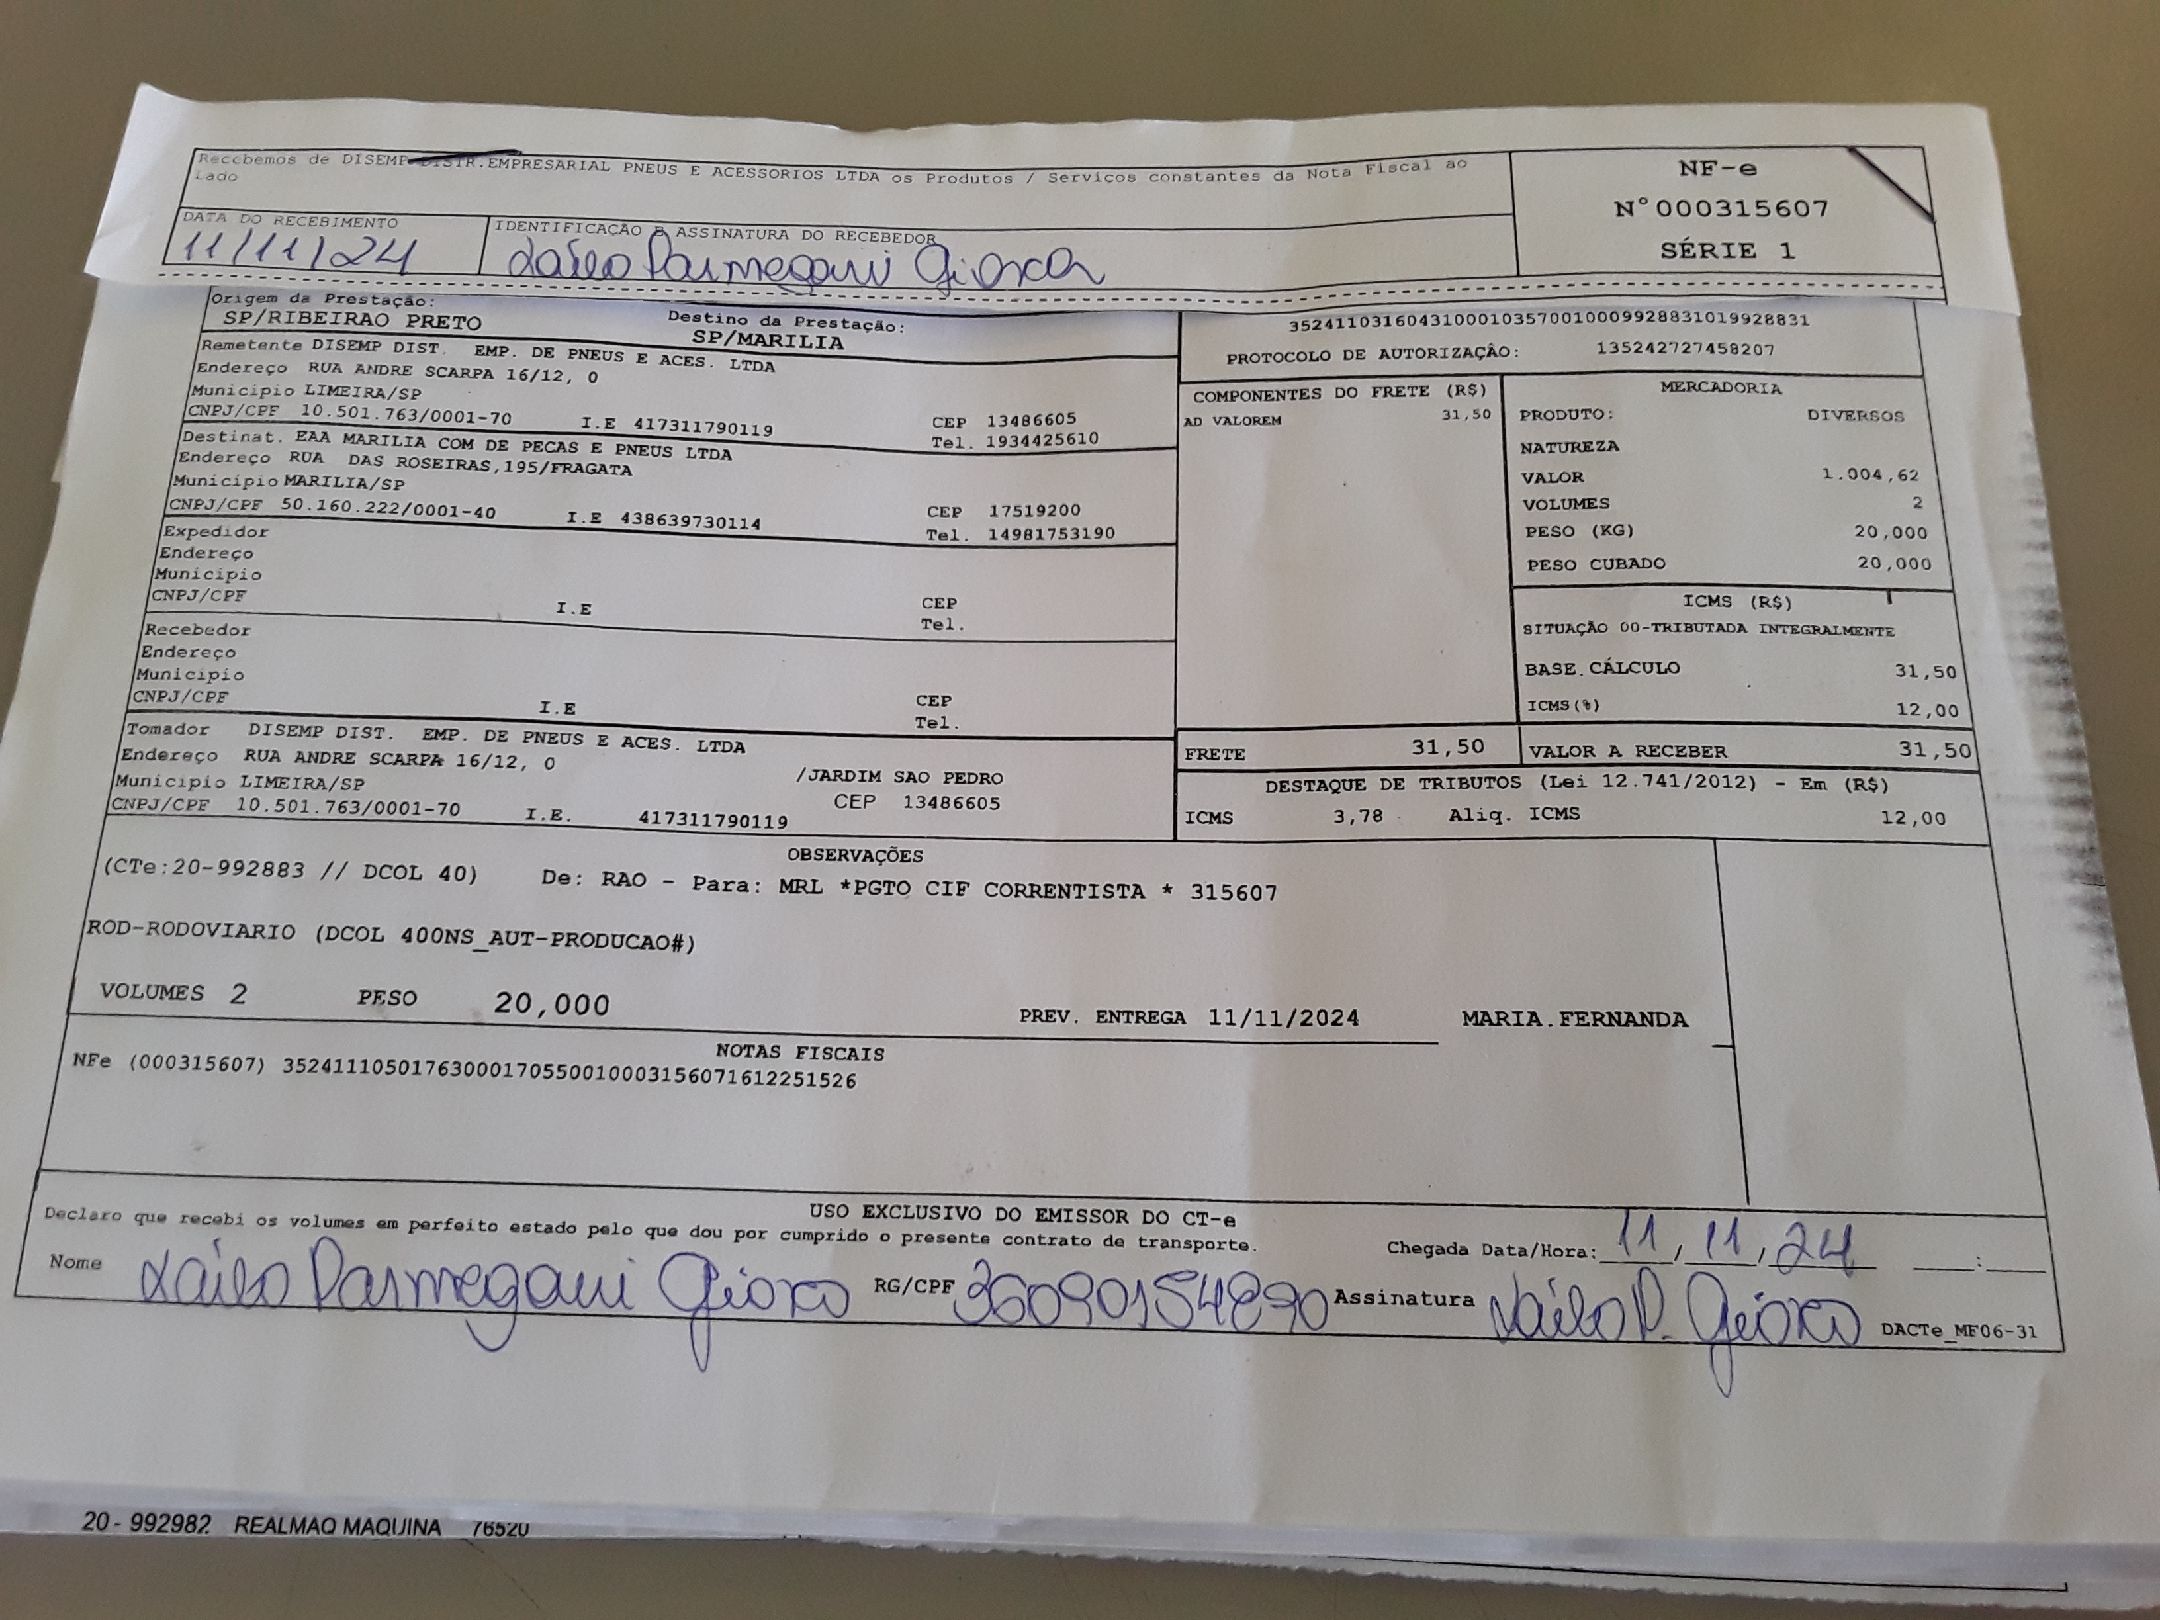 Recebemos de DISEMP DISTR.EMPRESARIAL PNEUS E ACESSORIOS LTDA os Produtos / Serviços constantes da Nota Fiscal ao
Lado
NF-e
N°000315607
SÉRIE 1
DATA DO RECEBIMENTO
11/11/24
IDENTIFICAÇÃO E ASSINATURA DO RECEBEDOR
Parmegani
Origem da Prestação:
SP/RIBEIRAO PRETO
Destino da Prestação:
SP/MARILIA
35241103160431000103570010009928831019928831
PROTOCOLO DE AUTORIZAÇÃO: 135242727458207
Remetente DISEMP DIST. EMP. DE PNEUS E ACES. LTDA
Endereço RUA ANDRE SCARPA 16/12, 0
Municipio LIMEIRA/SP
CNPJ/CPF 10.501.763/0001-70 I.E 417311790119
CEP 13486605
Tel. 1934425610
Destinat. EAA MARILIA COM DE PECAS E PNEUS LTDA
Endereço RUA DAS ROSEIRAS,195/FRAGATA
Municipio MARILIA/SP
CNPJ/CPF 50.160.222/0001-40 I.E 438639730114
CEP 17519200
Tel. 14981753190
Expedidor
Endereço
Municipio
CNPJ/CPF I.E
CEP
Tel.
Recebedor
Endereço
Municipio
CNPJ/CPF I.E
CEP
Tel.
Tomador DISEMP DIST. EMP. DE PNEUS E ACES. LTDA
Endereço RUA ANDRE SCARPA 16/12, 0 /JARDIM SAO PEDRO
Municipio LIMEIRA/SP CEP 13486605
CNPJ/CPF 10.501.763/0001-70 I.E. 417311790119
COMPONENTES DO FRETE (R$)
AD VALOREM 31,50
MERCADORIA
PRODUTO: DIVERSOS
NATUREZA
VALOR 1.004,62
VOLUMES 2
PESO (KG) 20,000
PESO CUBADO 20,000
ICMS (R$)
SITUAÇÃO 00-TRIBUTADA INTEGRALMENTE
BASE.CÁLCULO 31,50
ICMS(%) 12,00
FRETE 31,50 VALOR A RECEBER 31,50
DESTAQUE DE TRIBUTOS (Lei 12.741/2012) - Em (R$)
ICMS 3,78 Aliq. ICMS 12,00
OBSERVAÇÕES
(CTe:20-992883 // DCOL 40) De: RAO - Para: MRL *PGTO CIF CORRENTISTA * 315607
ROD-RODOVIARIO (DCOL 400NS_AUT-PRODUCAO#)
VOLUMES 2 PESO 20,000 PREV. ENTREGA 11/11/2024 MARIA.FERNANDA
NOTAS FISCAIS
NFe (000315607) 35241110501763000170550010003156071612251526
USO EXCLUSIVO DO EMISSOR DO CT-e
Declaro que recebi os volumes em perfeito estado pelo que dou por cumprido o presente contrato de transporte.
Chegada Data/Hora: 11/11/24 :
Nome Parmegani RG/CPF 36090154890 Assinatura
DACTe_MF06-31
20- 992982 REALMAQ MAQUINA 76520